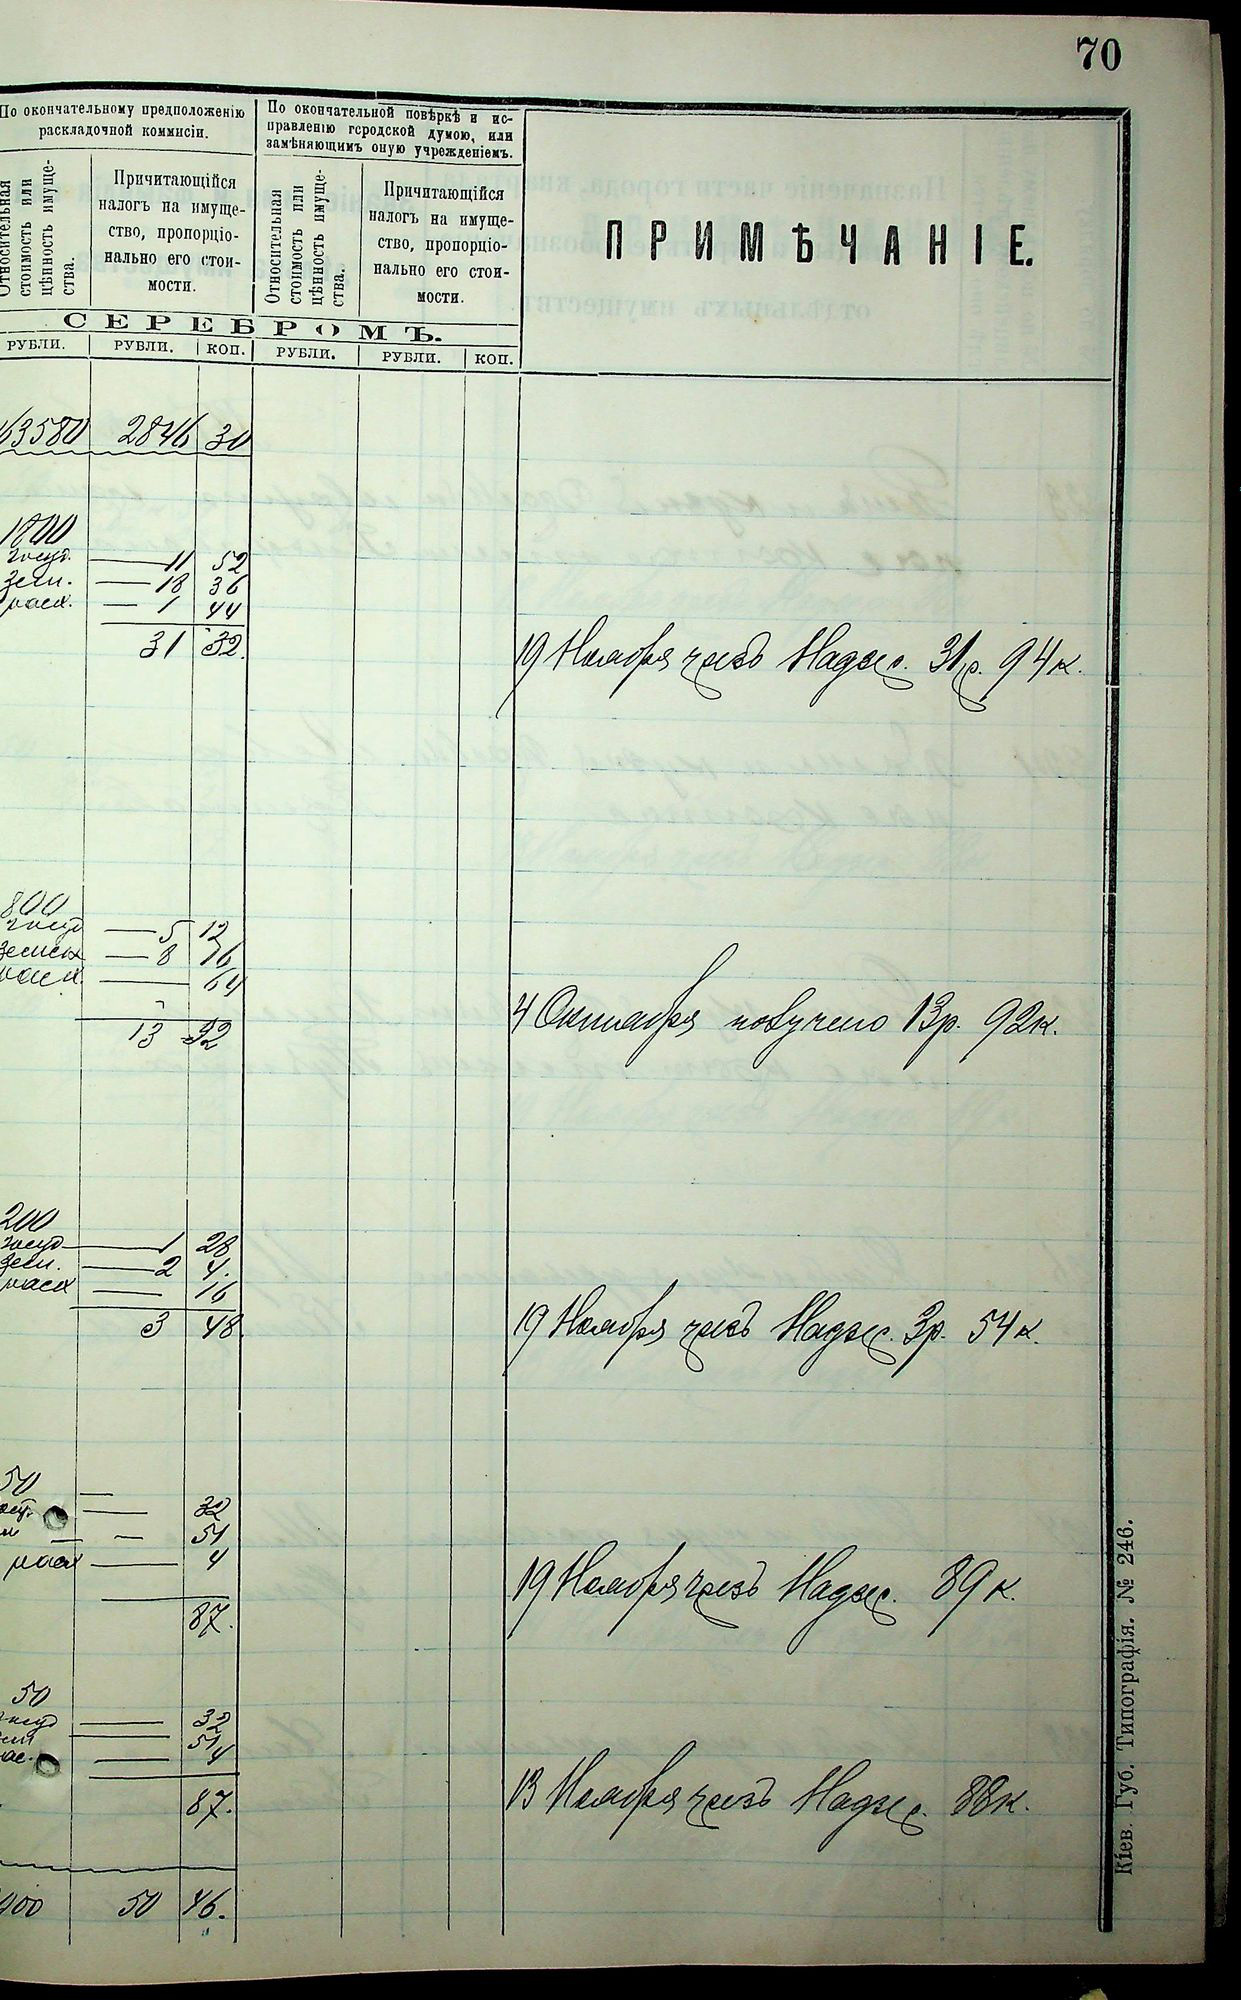 70
По окончательному предположенію
раскладочной коммисіи.
По окончательной повѣркѣ и ис-
правленію городской думою, или
замѣняющимъ оную учрежденіемъ.
Относительная
стоимость или
цѣнность имуще-
ства.
Причитающійся
налогъ на имуще-
ство, пропорціо-
нально его стои-
мости.
Относительная
стоимость или
цѣнность имуще-
ства.
Причитающійся
налогъ на имуще-
ство, пропорціо-
нально его стои-
мости.
ПРИМѢЧАНІЕ.
СЕРЕБРОМЪ.
РУБЛИ. РУБЛИ. КОП. РУБЛИ. РУБЛИ. КОП.
63580 2846 30
1800
госуд. — 11 52
земл. — 18 36
расх. — 1 44
31 32.
19 Ноября чрезъ Надзс. 31р. 94к.
800
госуд — 5 12
земск — 8 16
расх. — 64
13 92
4 Октября получено 13р. 92к.
200
госуд — 1 28
зем. — 2 4.
расх — 16
3 48.
19 Ноября чрезъ Надзс. 3р. 54к.
50
— 32
— 51
расх — 4
87.
19 Ноября чрезъ Надзс. 89к.
50
госуд — 32
— 51
— 4
87.
13 Ноября чрезъ Надзс. 88к.
50 46.
Кіев. Губ. Типографія. № 246.